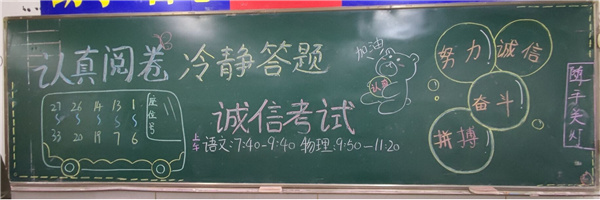 认真阅卷 冷静答题
加油
认真
诚信考试
上午 语文:7:40-9:40 物理:9:50-11:20
27 26 14 13 1
S S S S S
33 20 19 7 6
座位号
努力!
诚信
奋斗!
拼搏!
随手关灯